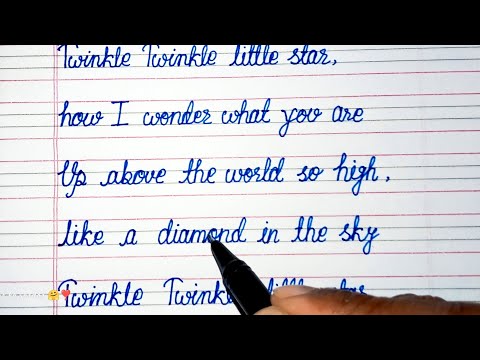 Twinkle Twinkle little star,
how I wonder what you are
Up above the world so high,
like a diamond in the sky
Twinkle Twinkle little star